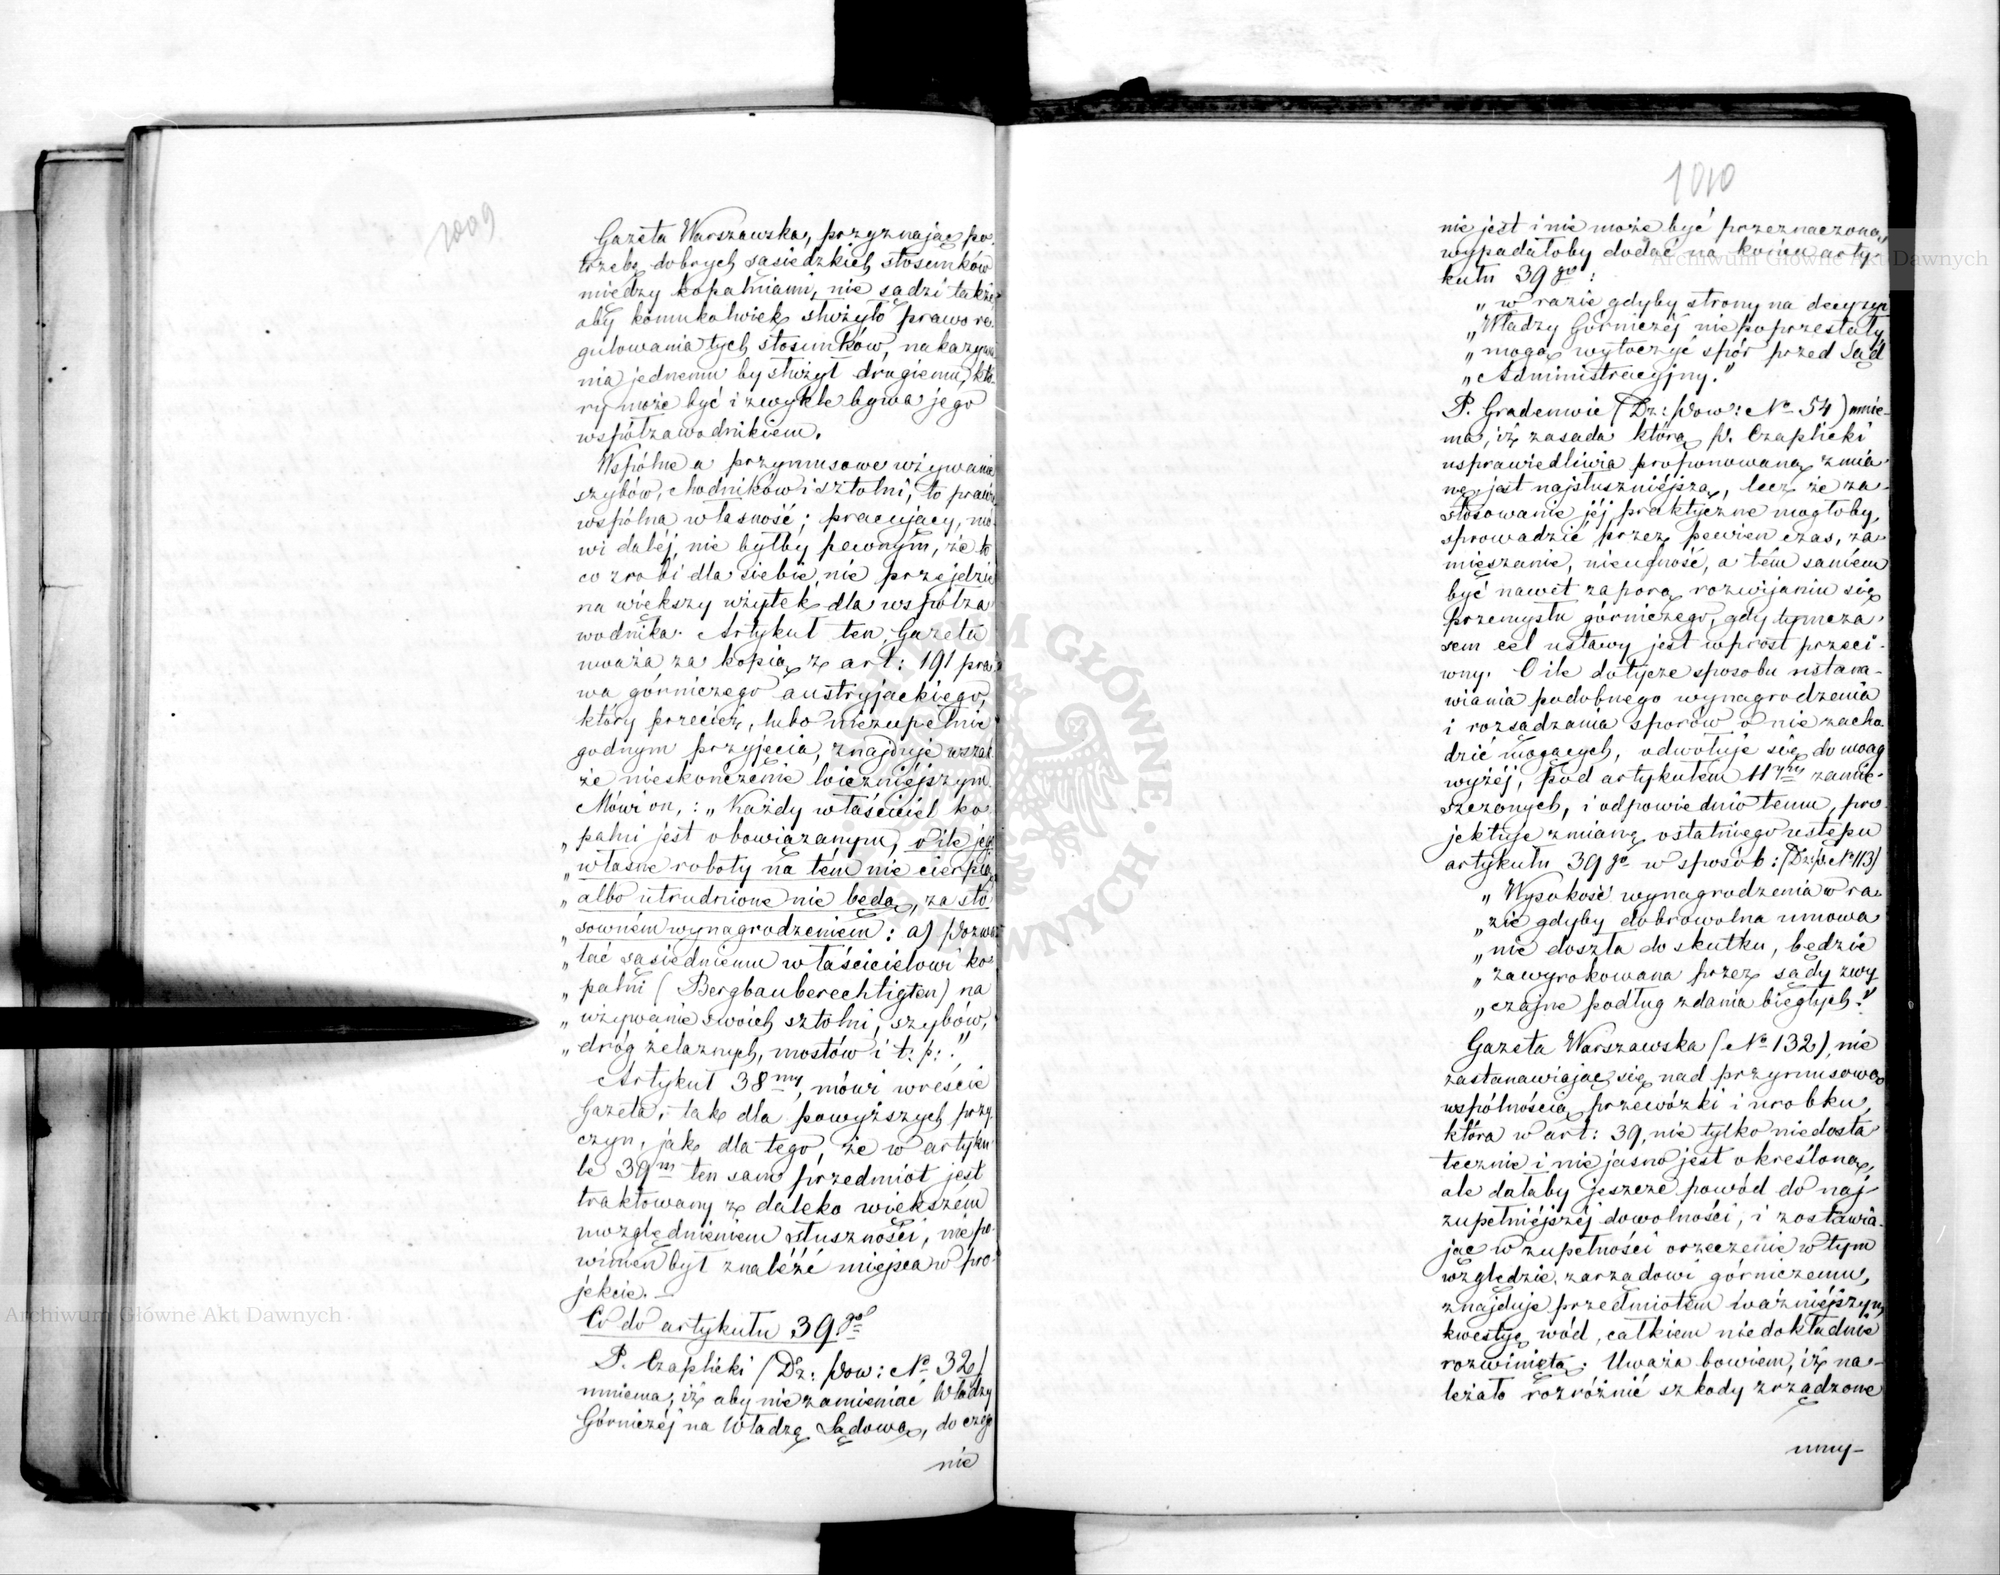 1009
Gazeta Warszawska, przyznając po-
trzebę dobrych sąsiedzkich stosunków
między kopalniami, nie sądzi także
aby komukolwiek służyło prawo re-
gulowania tych stosunków, nakazywa
nia jednemu by służył drugiemu, któ-
ry może być i zwykle bywa jego
współzawodnikiem.
Wspólne a przymusowe używanie
szybów, chodników i sztolni, to prawie
wspólna własność; pracujący, mó-
wi daléj, nie byłby pewnym, że to
co zrobi dla siebie, nie przejdzie
na większy użytek dla współza
wodnika. Artykuł ten, Gazeta
uważa za kopią z art: 191 pra
wa górniczego austryjackiego,
który przecież, lubo niezupełnie
godnym przyjęcia, znajduje wszak
że nieskończenie loiczniéjszym.
Mówi on,: „Każdy właściciel ko
„palni jest obowiązanym, o ile jego
„własne roboty na tém nie cierpią
„albo utrudnione nie będą, za sto
„sowném wynagrodzeniem: a) Pozwa
„lać sąsiedniemu właścicielowi ko-
„palni (Bergbauberechtigten) na
„używanie swoich sztolni, szybów,
„dróg żelaznych, mostów i t: p:."
Artykuł 38my, mówi wreście
Gazeta, tak dla powyższych przy
czyn, jak dla tego, że w artyku
le 39m ten sam przedmiot jest
traktowany z daleko większém
uwzględnieniem słuszności, niepo
winien był znaléźć miejsca w pro
jekcie.—
Co do artykułu 39go
P. Czaplicki (Dz: Pow: No 32)
mniema, iż aby nie zamieniać Władzy
Górniczéj na Władzę Sądową, do czego
nie
1010
nie jest i nie może być przeznaczoną,
wypadałoby dodać na końcu arty-
kułu 39go:
„w razie gdyby strony na decyzyi
„Władzy Górniczéj nie poprzestały
„mogą wytoczyć spór przed Sąd
„Administracyjny."
P. Gradenwic (Dz: Pow: No 54) mnie-
ma, iż zasada którą P. Czaplicki
usprawiedliwia proponowaną zmia-
nę, jest najsłuszniéjszą, lecz że za-
stosowanie jéj praktyczne mogłoby,
sprowadzić przez pewien czas, za-
mięszanie, nieufność, a tém samém
być nawet zaporą rozwijaniu się
przemysłu górniczego, gdy tymcza-
sem cel ustawy jest wprost przeci-
wny. O ile dotycze sposobu ustana-
wiania podobnego wynagrodzenia
i rozsądzania sporów o nie zacho
dzić mogących, odwołuje się do uwag
wyżéj, pod artykułem 11tym zamie-
szczonych, i odpowiednio temu, pro
jektuje zmianę ostatniego ustępu
artykułu 39go w sposób: (Dz: p: No 113)
„Wysokość wynagrodzenia w ra-
„zie gdyby dobrowolna umowa
„nie doszła do skutku, będzie
„zawyrokowana przez sądy zwy
„czajne podług zdania biegłych."
Gazeta Warszawska (No 132), nie
zastanawiając się nad przymusową
wspólnością przewózki i urobku,
która w art: 39, nie tylko niedosta
tecznie i niejasno jest określoną,
ale dałaby jeszcze powód do naj-
zupełniéjszéj dowolności, i zostawia-
jąc w zupełności orzeczenie w tym
względzie, zarządowi górniczemu,
znajduje przedmiotem ważniéjszym
kwestyę wód, całkiem niedokładnie
rozwiniętą: Uważa bowiem, iż na-
leżało rozróżnić szkody zrządzone
umy-
Archiwum Główne Akt Dawnych
Archiwum Główne Akt Dawnych